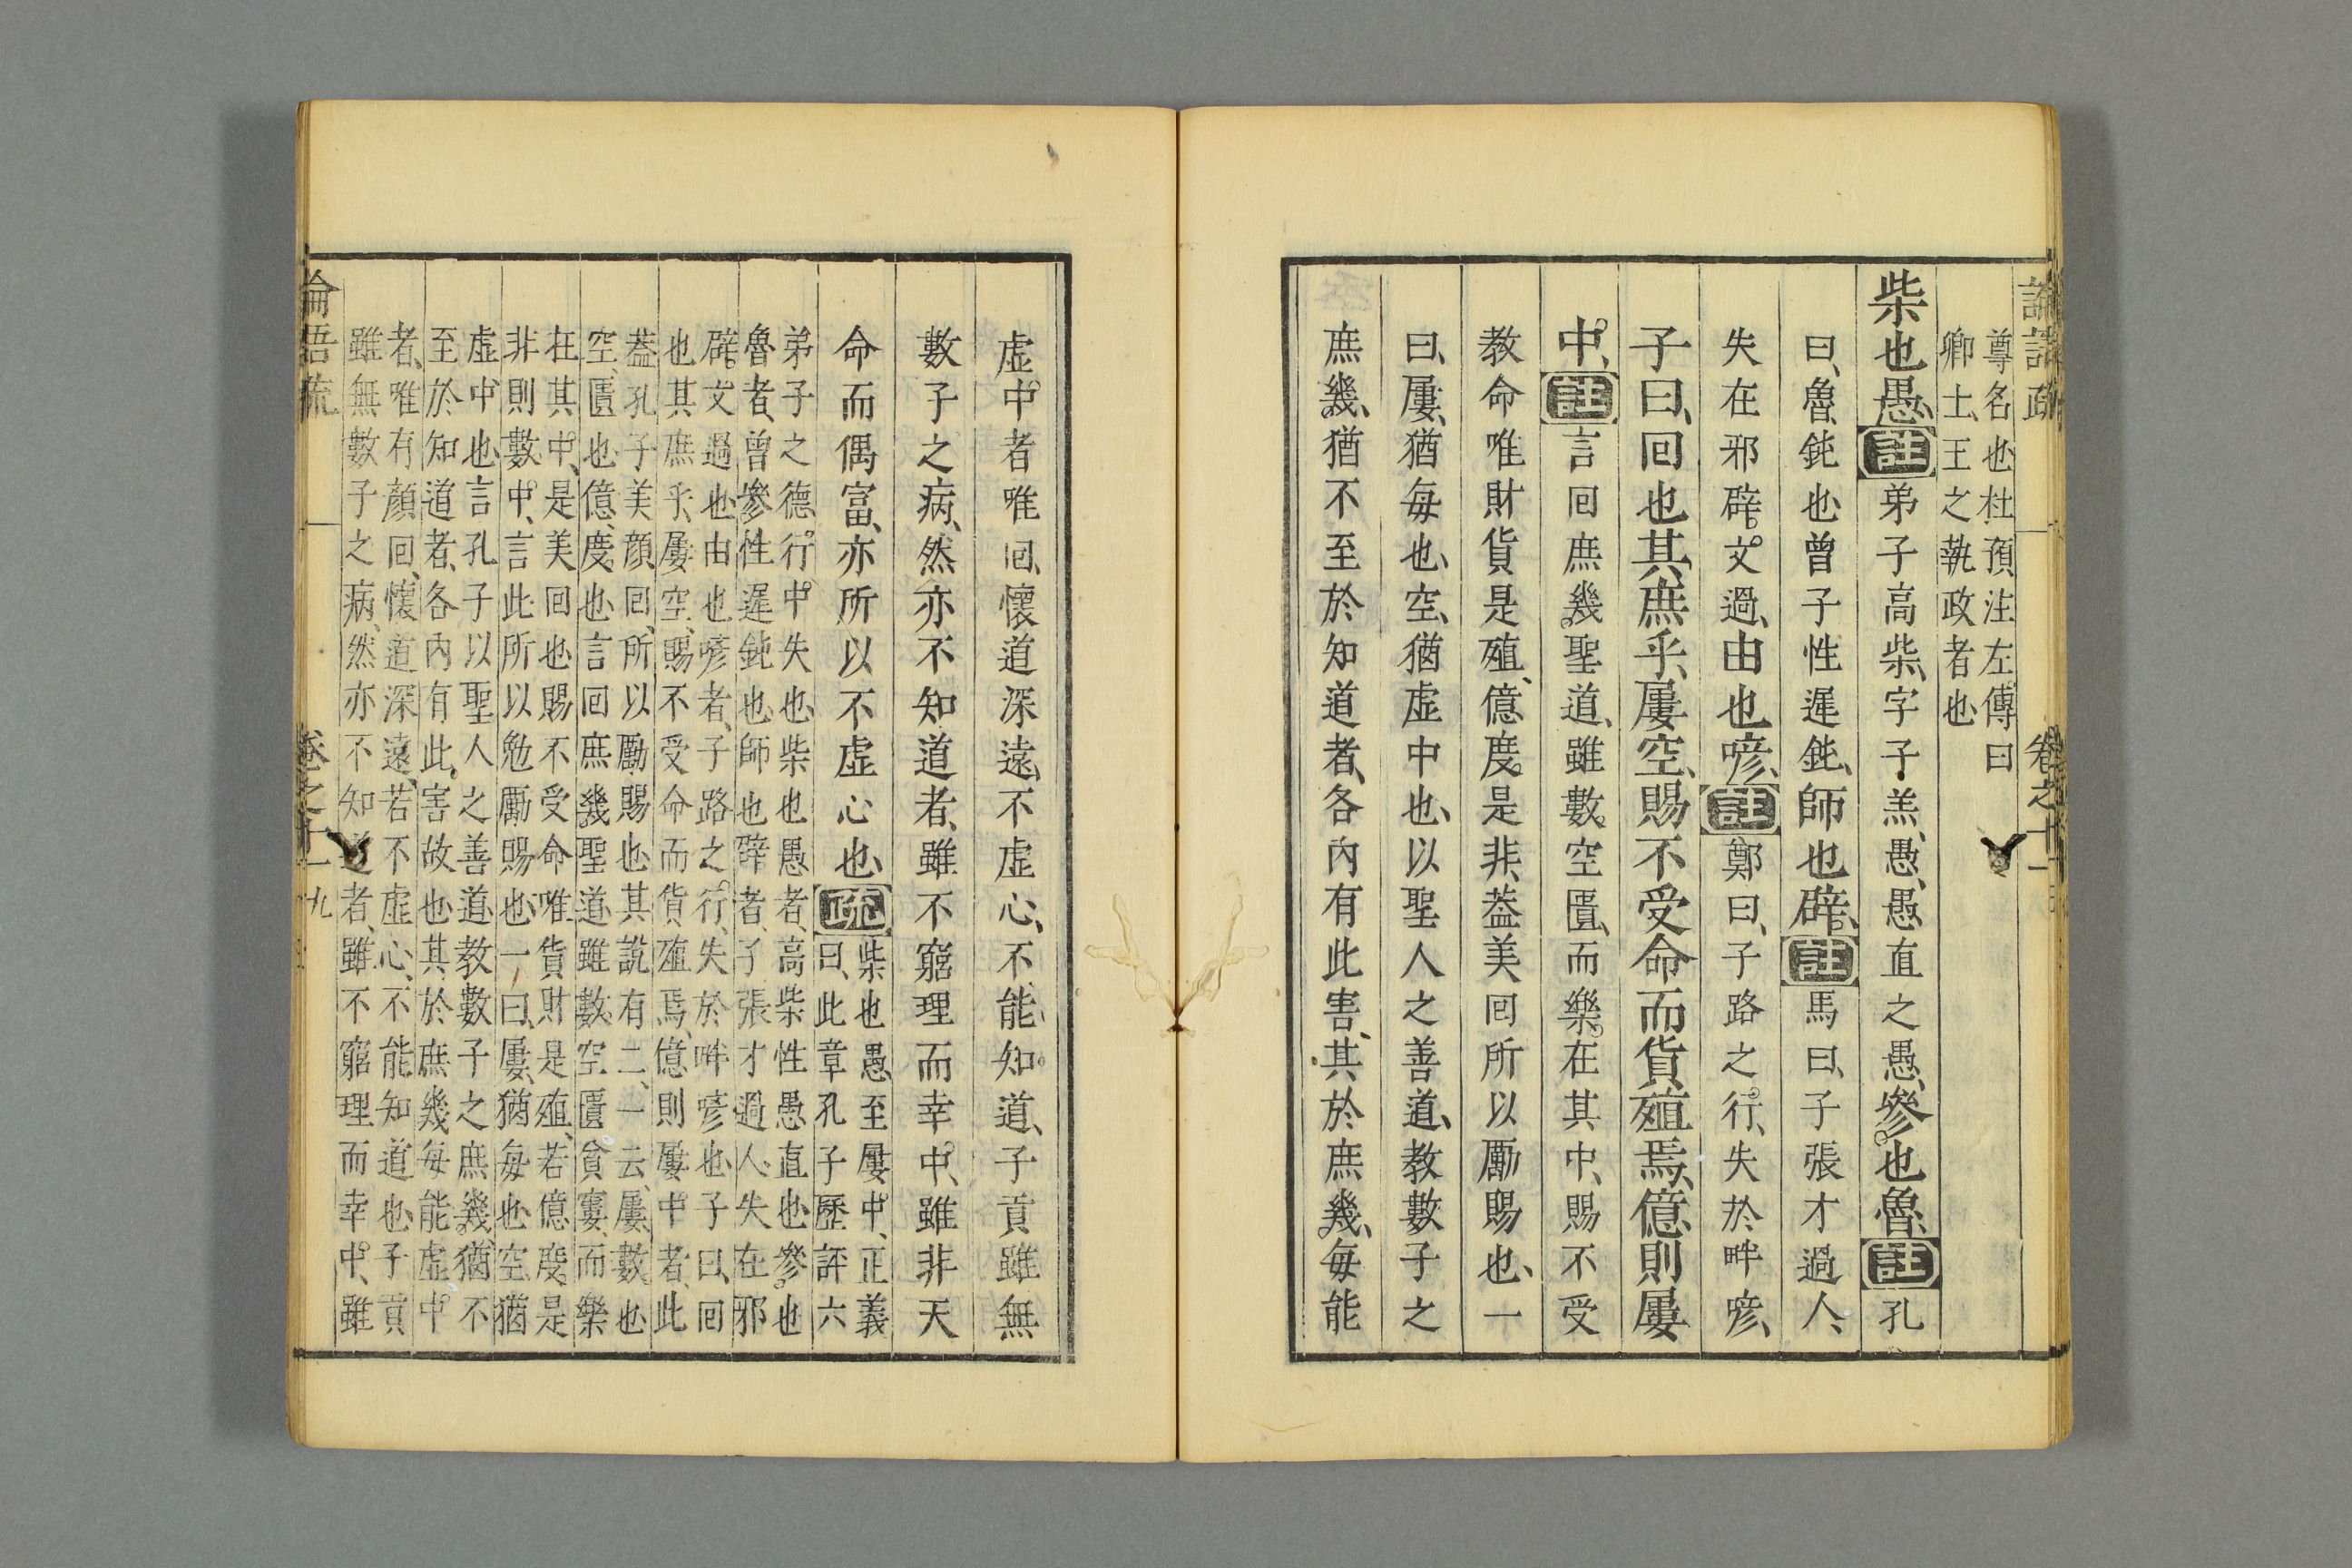 論語疏 卷之十一
尊名也杜預注左傳曰
卿士王之執政者也
柴也愚註弟子高柴字子羔愚愚直之愚參也魯註孔
曰魯鈍也曾子性遲鈍師也辟註馬曰子張才過人
失在邪辟文過由也喭註鄭曰子路之行失於畔喭
子曰回也其庶乎屢空賜不受命而貨殖焉億則屢
中註言回庶幾聖道雖數空匱而樂在其中賜不受
教命唯財貨是殖億度是非葢美回所以勵賜也一
曰屢猶每也空猶虛中也以聖人之善道教數子之
庶幾猶不至於知道者各內有此害其於庶幾每能
虛中者唯回懷道深遠不虛心不能知道子貢雖無
數子之病然亦不知道者雖不窮理而幸中雖非天
命而偶富亦所以不虛心也疏
柴也愚至屢中正義
曰此章孔子歷評六
弟子之德行中失也柴也愚者高柴性愚直也參也
魯者曾參性遲鈍也師也辟者子張才過人失在邪
辟文過也由也喭者子路之行失於畔喭也子曰回
也其庶乎屢空賜不受命而貨殖焉億則屢中者此
葢孔子美顏回所以勵賜也其說有二一云屢數也
空匱也億度也言回庶幾聖道雖數空匱貧窶而樂
在其中是美回也賜不受命唯貨財是殖若億度是
非則數中言此所以勉勵賜也一曰屢猶每也空猶
虛中也言孔子以聖人之善道教數子之庶幾猶不
至於知道者各內有此害故也其於庶幾每能虛中
者唯有顏回懷道深遠若不虛心不能知道也子貢
雖無數子之病然亦不知道者雖不窮理而幸中雖
論語疏 卷之十一 九